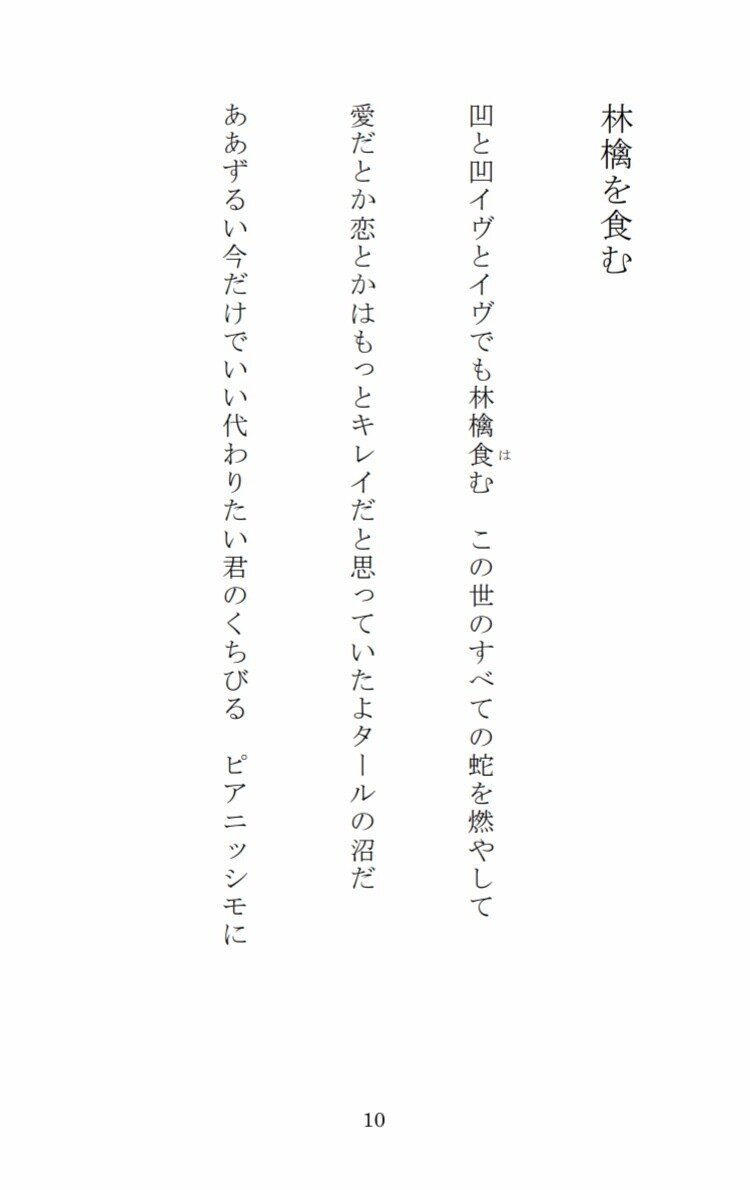 林檎を食む
凹と凹イヴとイヴでも林檎食む　この世のすべての蛇を燃やして
は
愛だとか恋とかはもっとキレイだと思っていたよタールの沼だ
ああずるい今だけでいい代わりたい君のくちびる　ピアニッシモに
10